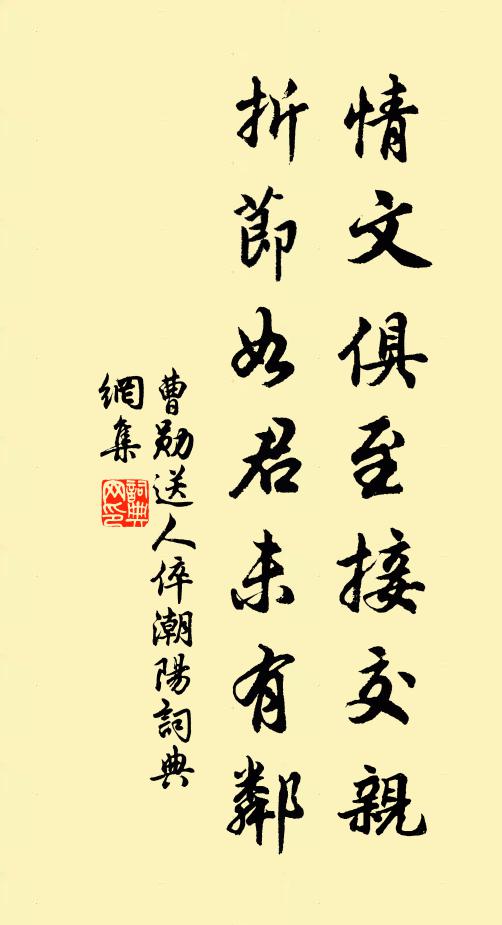 情文俱至接交親
折節如君未有鄰
曹勛送人倅潮陽詞典
網集
詞典
网印